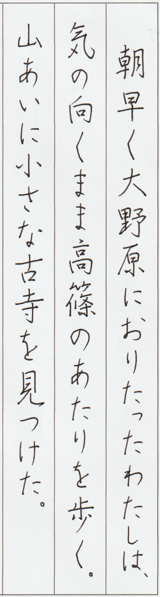 朝早く大野原におりたったわたしは、
気の向くまま高篠のあたりを歩く。
山あいに小さな古寺を見つけた。